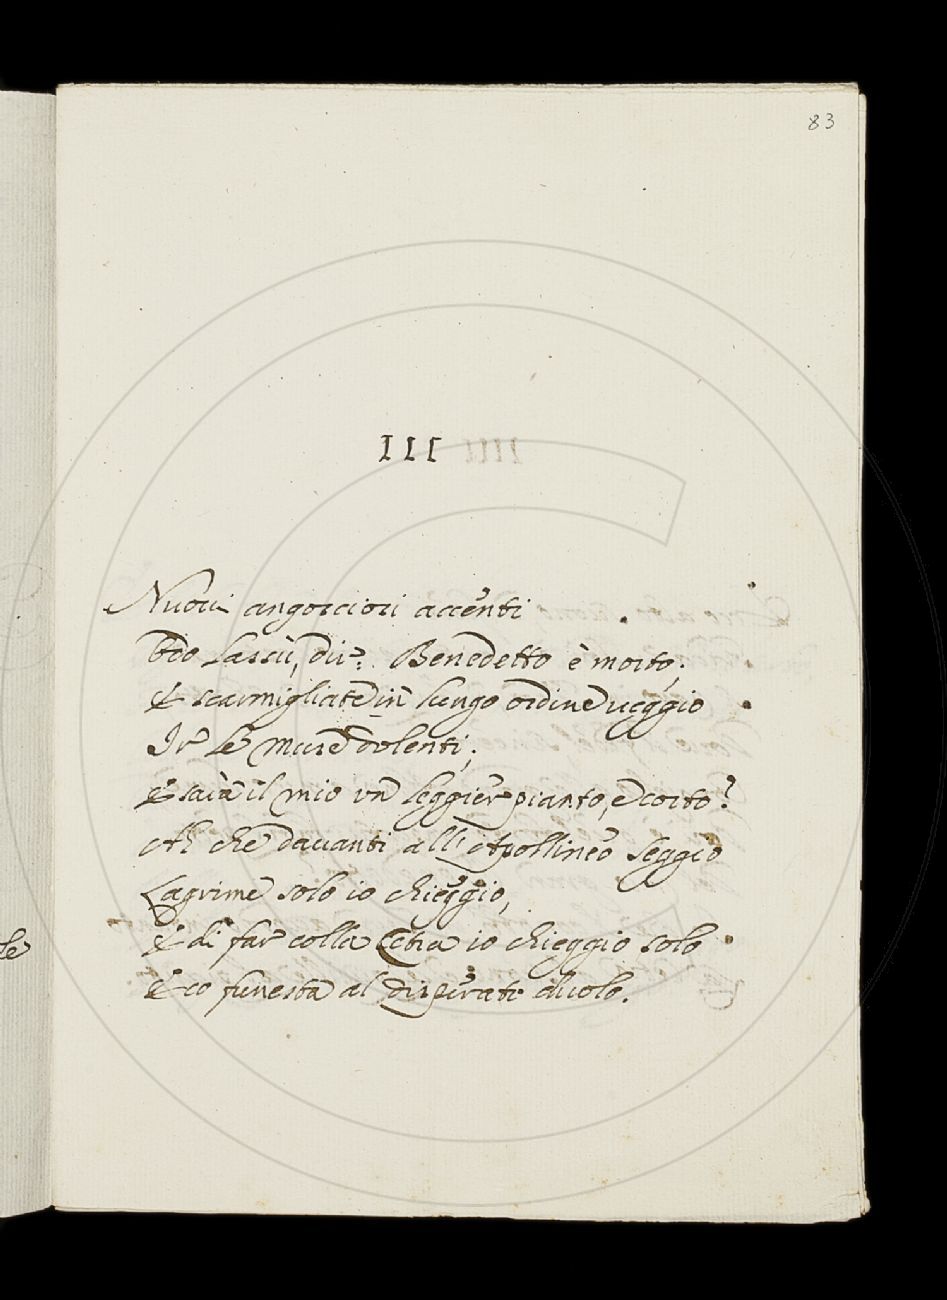 83
III
Nuovi angosciosi accenti
Odo lassù, dir: Benedetto è morto;
E scarmigliate in lungo ordine ueggio
Ir le Muse dolenti;
E saia il mio un leggier pianto, e corto?
Ah che dauanti all' Apollineo seggio
Lagrime solo io chieggio,
E di far colla Cetra io chieggio solo
Eco funesta al disperato duolo.